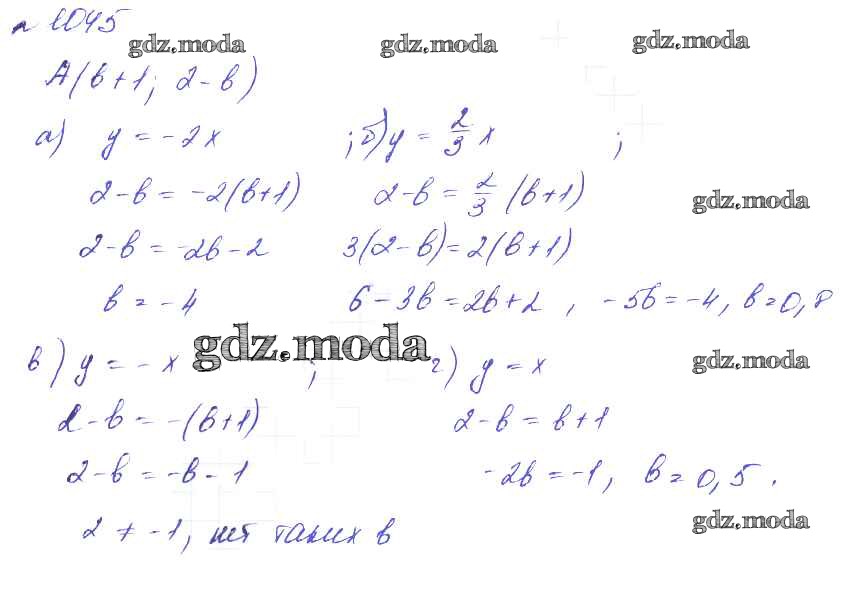 № 1045
gdz.moda gdz.moda gdz.moda
A(в+1; 2-в)
а) y = -2x ; б) y = 2/3 x ;
2-в = -2(в+1) 2-в = 2/3 (в+1)
gdz.moda
2-в = -2в-2 3(2-в)=2(в+1)
в = -4 6-3в=2в+2, -5в=-4, в=0,8
gdz.moda
в) y = -x ; г) y = x
gdz.moda
2-в = -(в+1) 2-в = в+1
2-в = -в-1 -2в=-1, в=0,5.
2 ≠ -1, нет таких в
gdz.moda